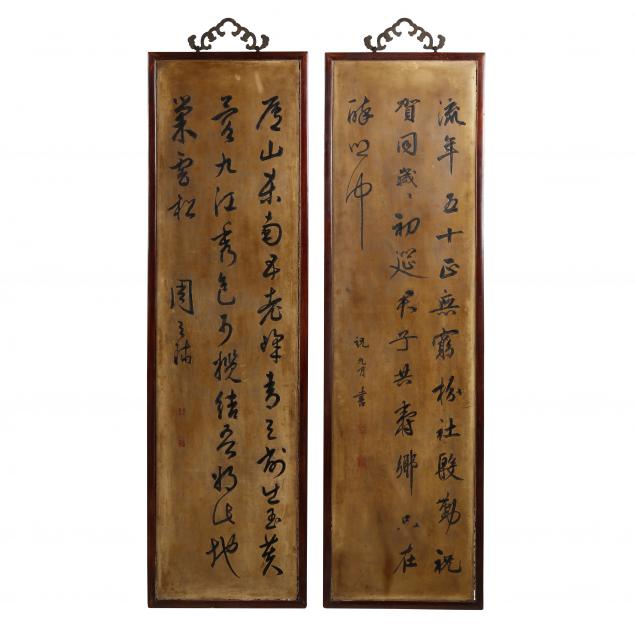 流年五十正無窮枌社殷勤祝
賀同歲々初筵君子共壽鄉只在
醉鄉中
祝允明書
廬山東南五老峰青天削出玉芙
蓉九江秀色可攬結吾將此地
巢雲松
周之